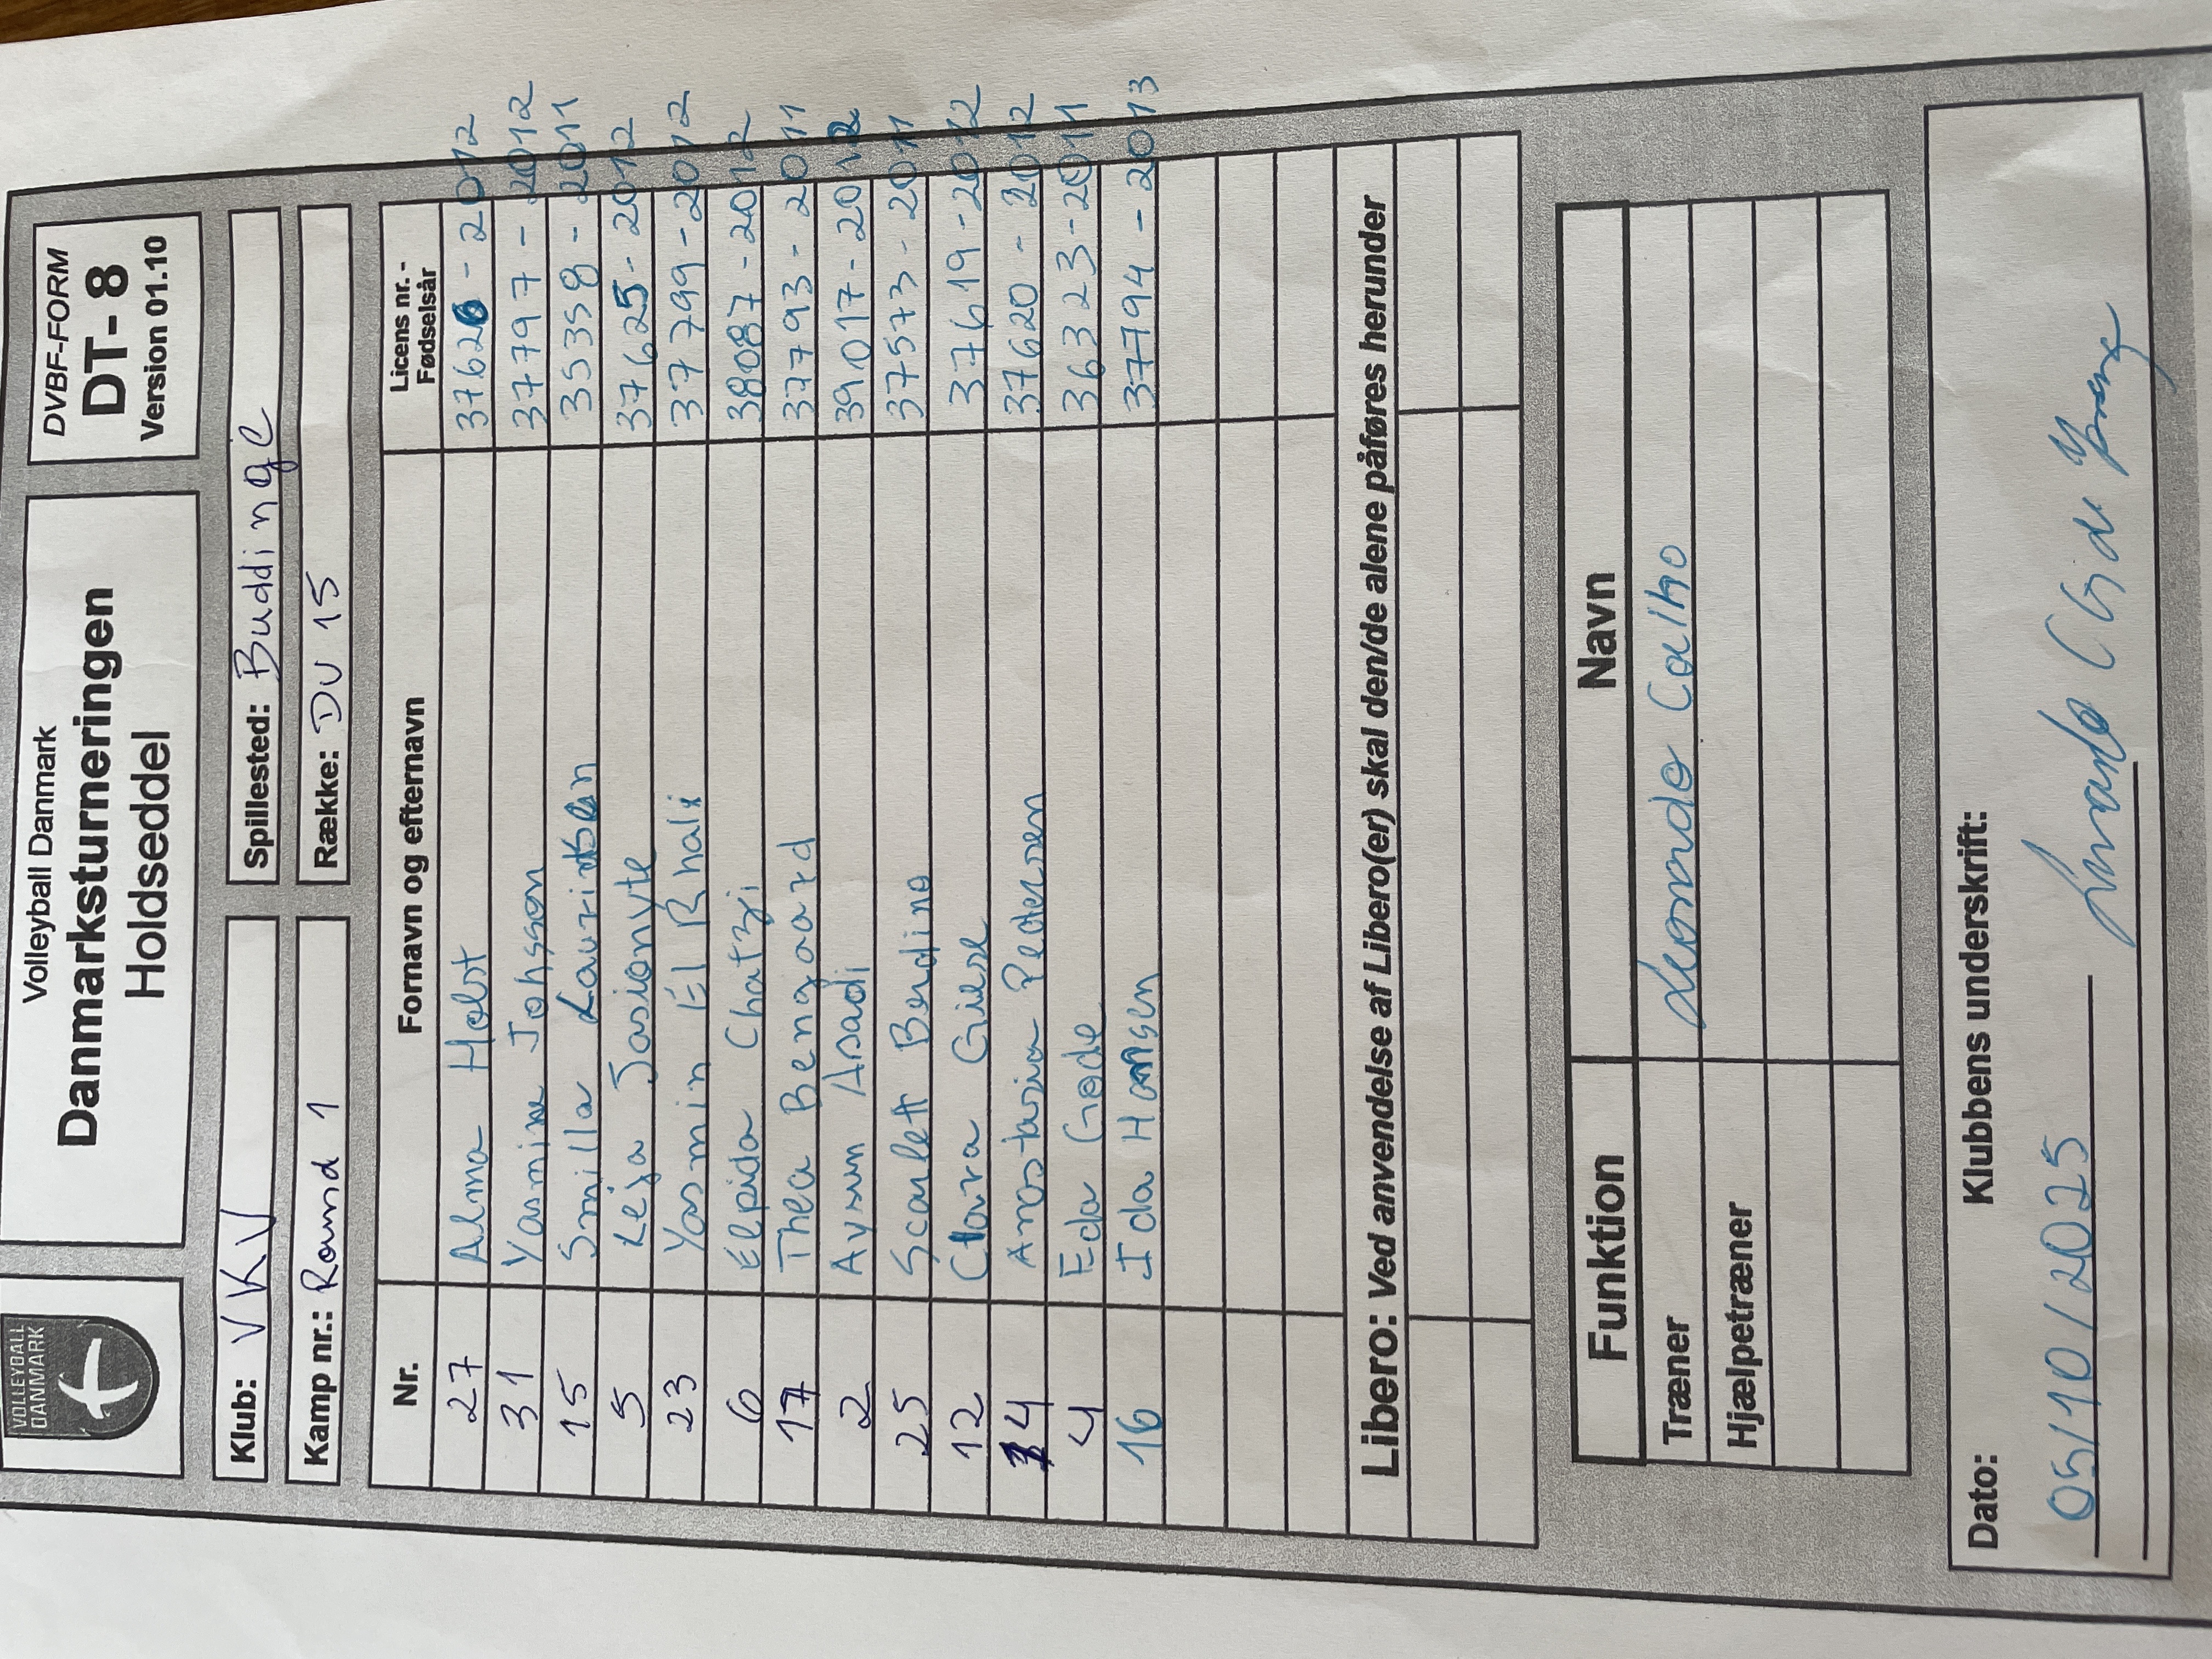 VOLLEYBALL
DANMARK
Volleyball Danmark
Danmarksturneringen
Holdseddel
DVBF-FORM
DT- 8
Version 01.10
Klub: VKV
Spillested: Buddinge
Kamp nr.: Round 1
Række: DU 15
Nr. Fornavn og efternavn Licens nr. - Fødselsår
27 Alma Holst 37626 - 2012
31 Yasmine Johsson 37797 - 2012
15 Smilla Lauritsen 35358 - 2011
5 Leja Jasionyte 37625 - 2012
23 Yasmin El Rhali 37799 - 2012
6 Elpida Chatzi 38087 - 2012
17 Thea Bengaard 37793 - 2011
2 Aysun Asadi 39017 - 2012
25 Scarlett Berdino 37573 - 2011
12 Clara Giese 37619 - 2012
14 Anastasia Pedersen 37620 - 2012
4 Eda Gode 36323 - 2011
16 Ida Hansen 37794 - 2013
Libero: Ved anvendelse af Libero(er) skal den/de alene påføres herunder
Funktion Navn
Træner Leonardo Calho
Hjælpetræner
Dato: Klubbens underskrift:
05/10/2025